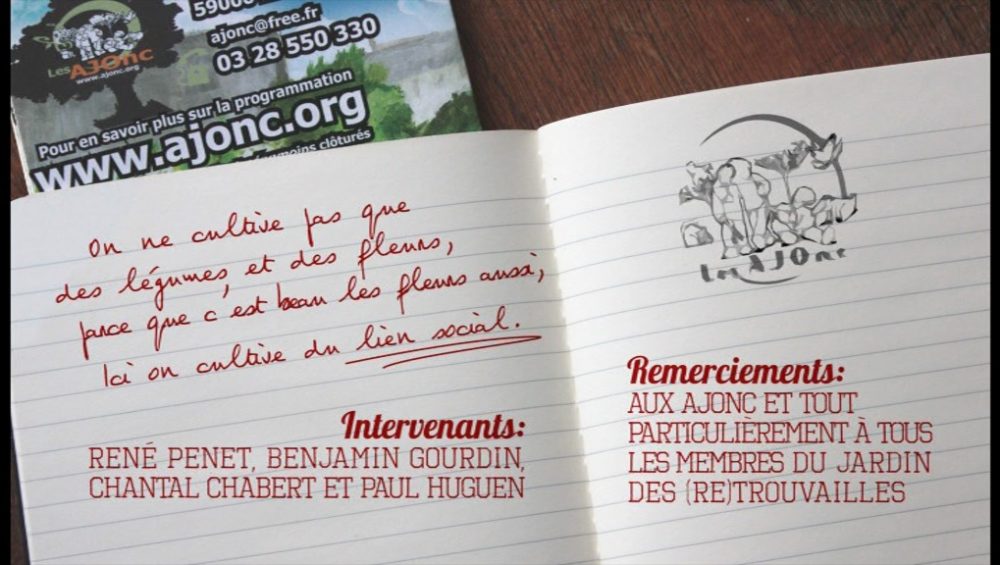 59000
ajonc@free.fr
03 28 550 330
Les AJOnc
www.ajonc.org
Pour en savoir plus sur la programmation
www.ajonc.org
moins clôturés
On ne cultive pas que
des légumes, et des fleurs,
parce que c'est beau les fleurs aussi,
Ici on cultive du lien social.
Intervenants:
RENÉ PENET, BENJAMIN GOURDIN,
CHANTAL CHABERT ET PAUL HUGUEN
Les AJOnc
Remerciements:
AUX AJONC ET TOUT
PARTICULIÈREMENT À TOUS
LES MEMBRES DU JARDIN
DES (RE)TROUVAILLES